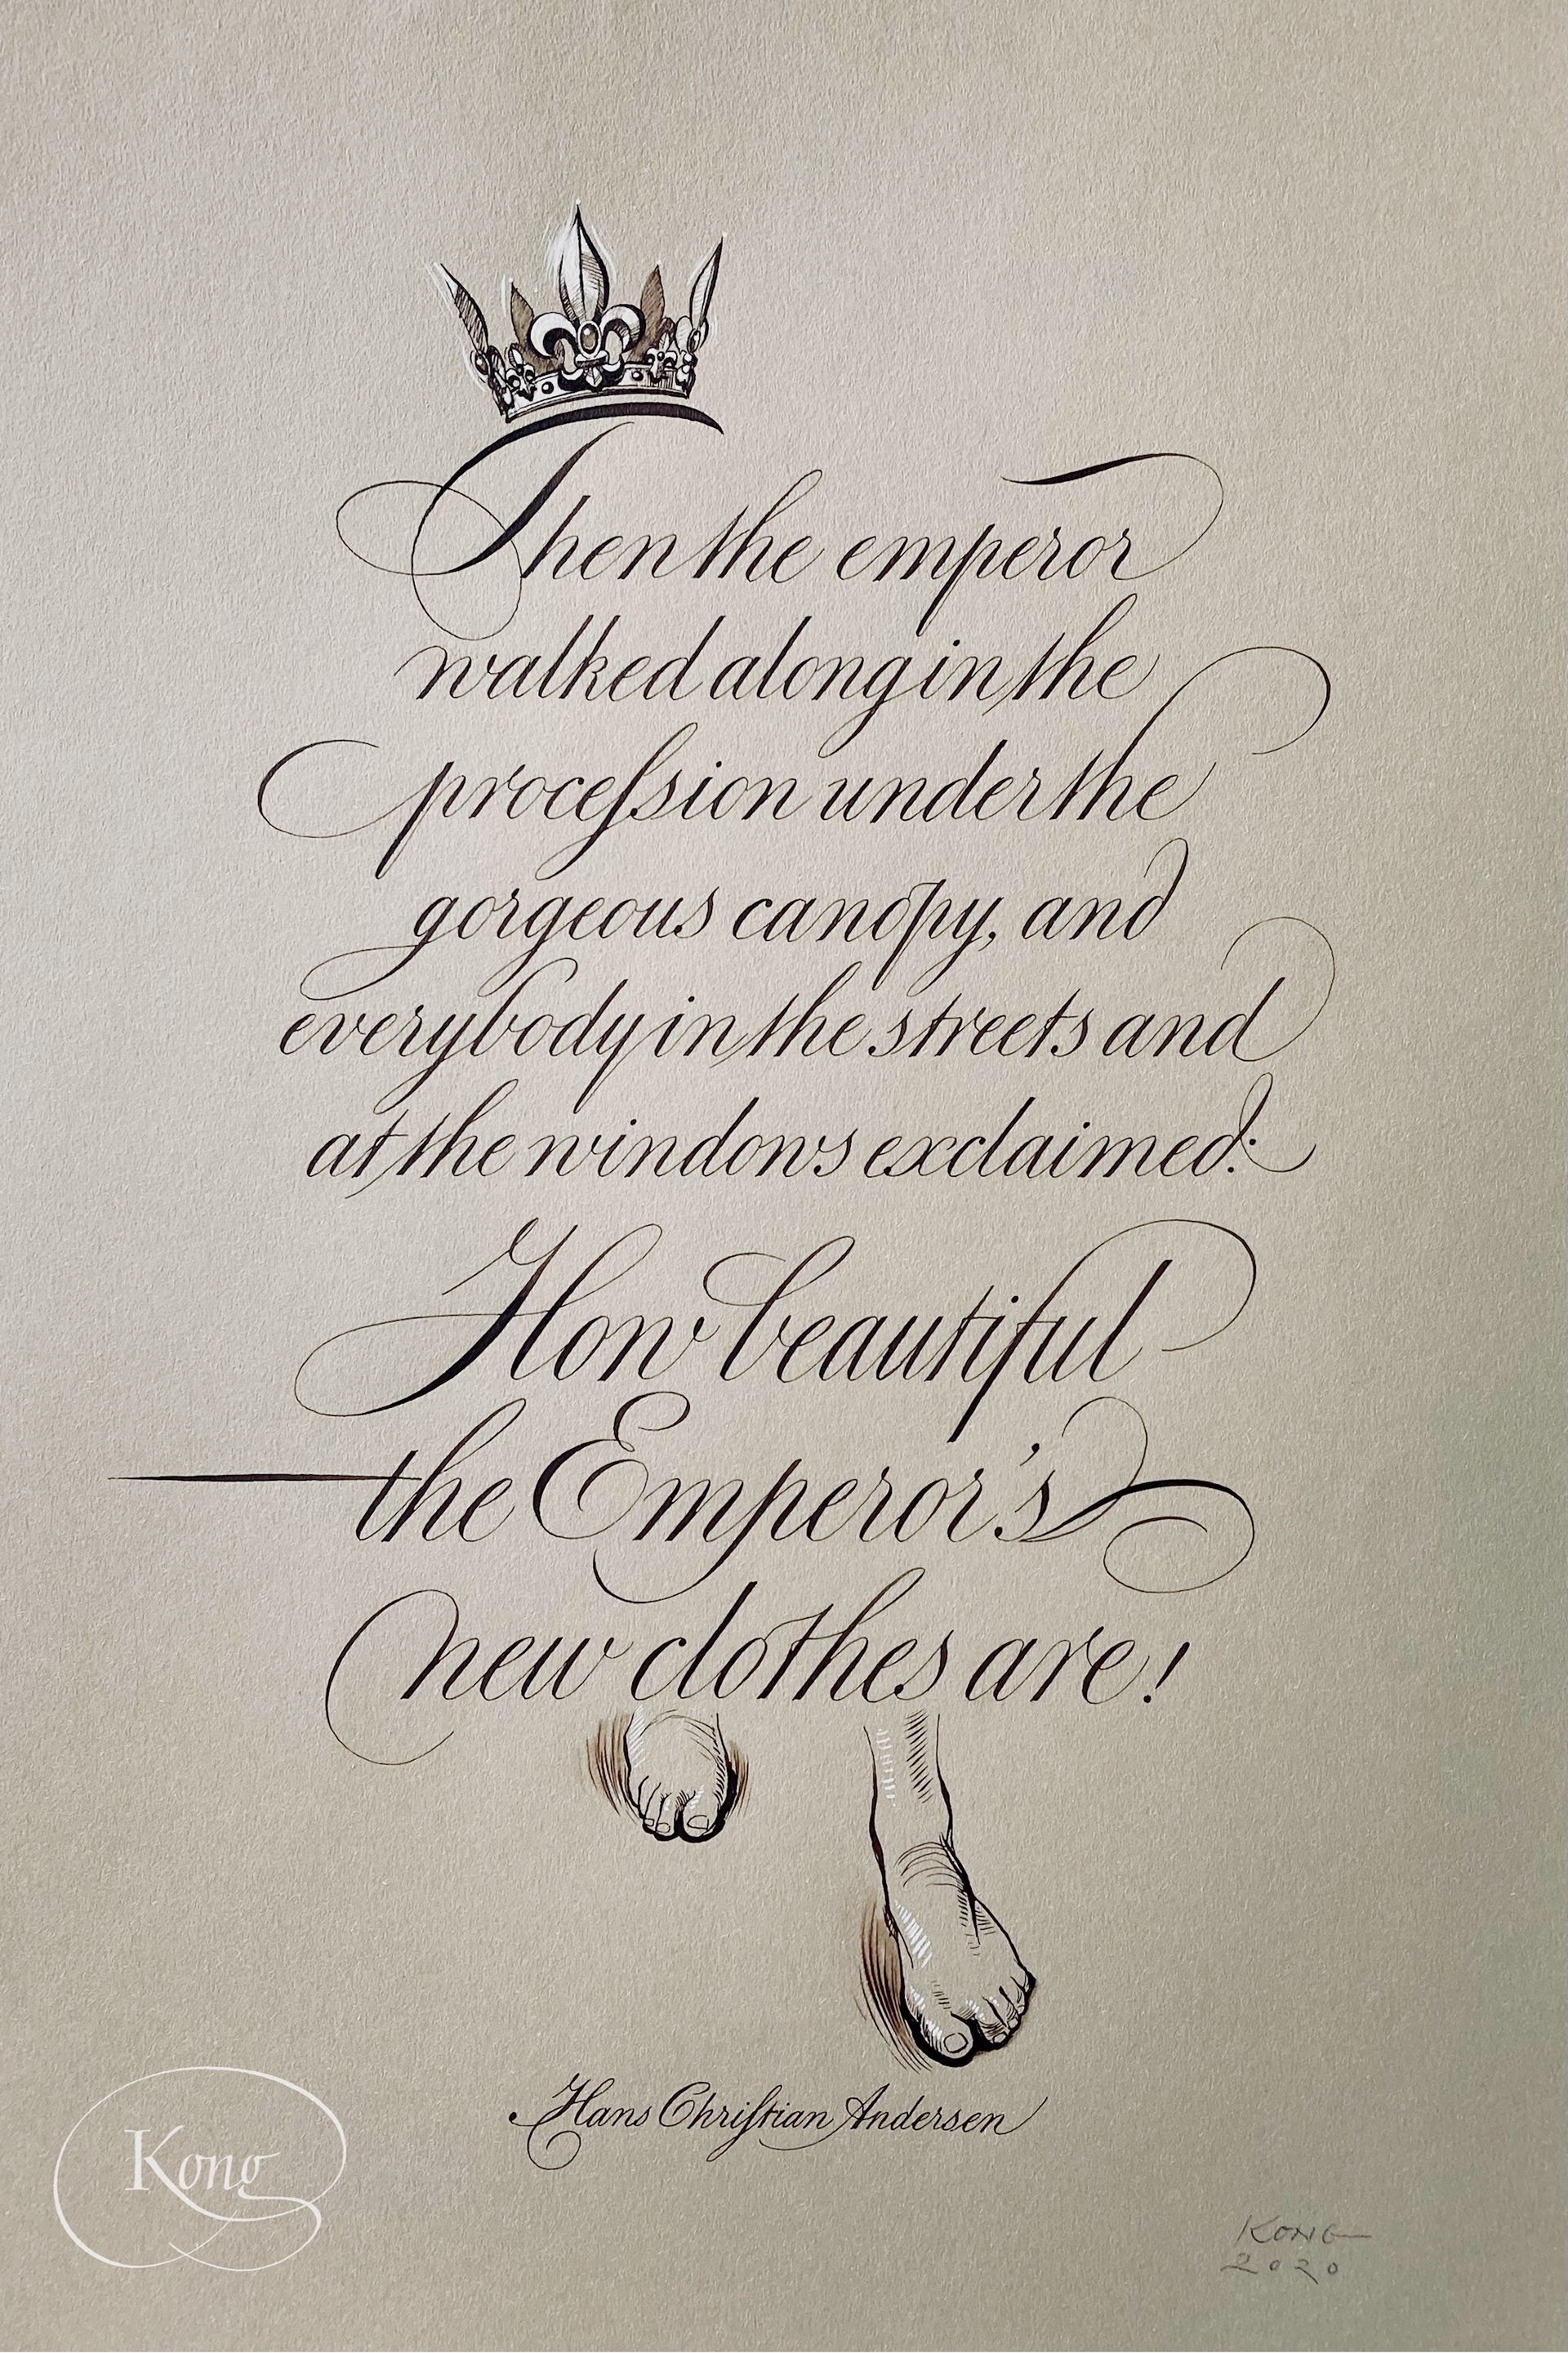 Then the emperor
walked along in the
proceſsion under the
gorgeous canopy, and
everybody in the streets and
at the windows exclaimed:
How beautiful
the Emperor's
new clothes are!
Hans Chriſtian Andersen
Kong
KONG
2020